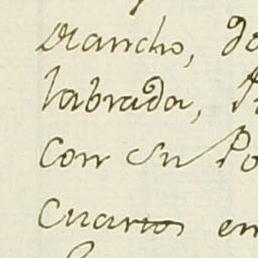 Plancho, do
labrada,
Con su Po
Cuartos en